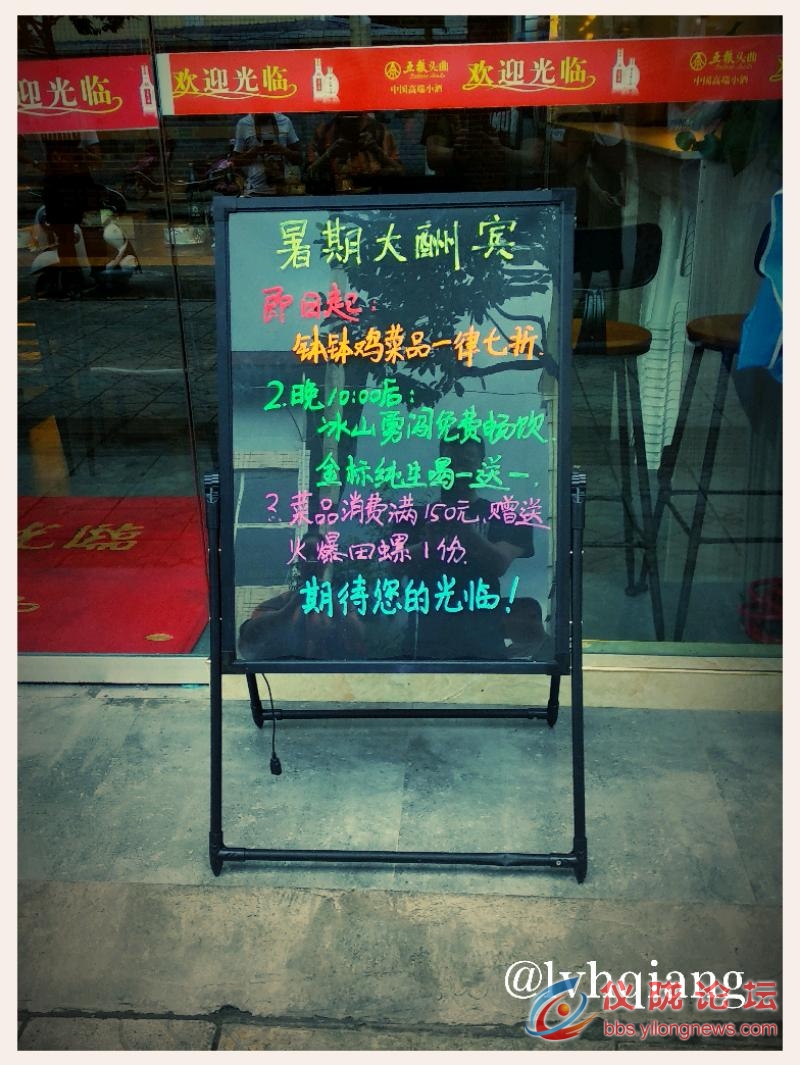 迎光临
欢迎光临
五粮头曲
中国高端小酒
欢迎光临
五粮头曲
中国高端小酒
暑期大酬宾
即日起:
钵钵鸡菜品一律七折.
2.晚10:00后:
冰山勇闯免费畅饮
金标纯生喝一送一.
3.菜品消费满150元,赠送
火爆田螺1份.
期待您的光临!
光臨
@lyhqiang
仪陇论坛
bbs.yilongnews.com